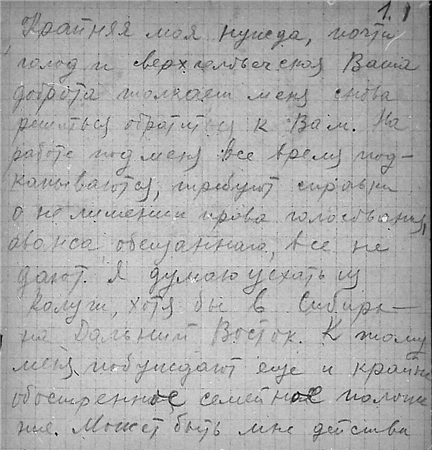 1.
Крайняя моя нужда, почти
голод и сверхчеловеческая Ваша
доброта толкает меня снова
решиться обратиться к Вам. На
работе под меня все время под-
капываются, требуют справки
о не лишении права голосования,
аванса обещанного, все не
дают. Я думаю уехать из
Калуги, хотя бы в Сибирь –
на Дальний Восток. К тому
меня побуждают еще и крайне
обостренное семейное положе
ние. Может быть мне действи